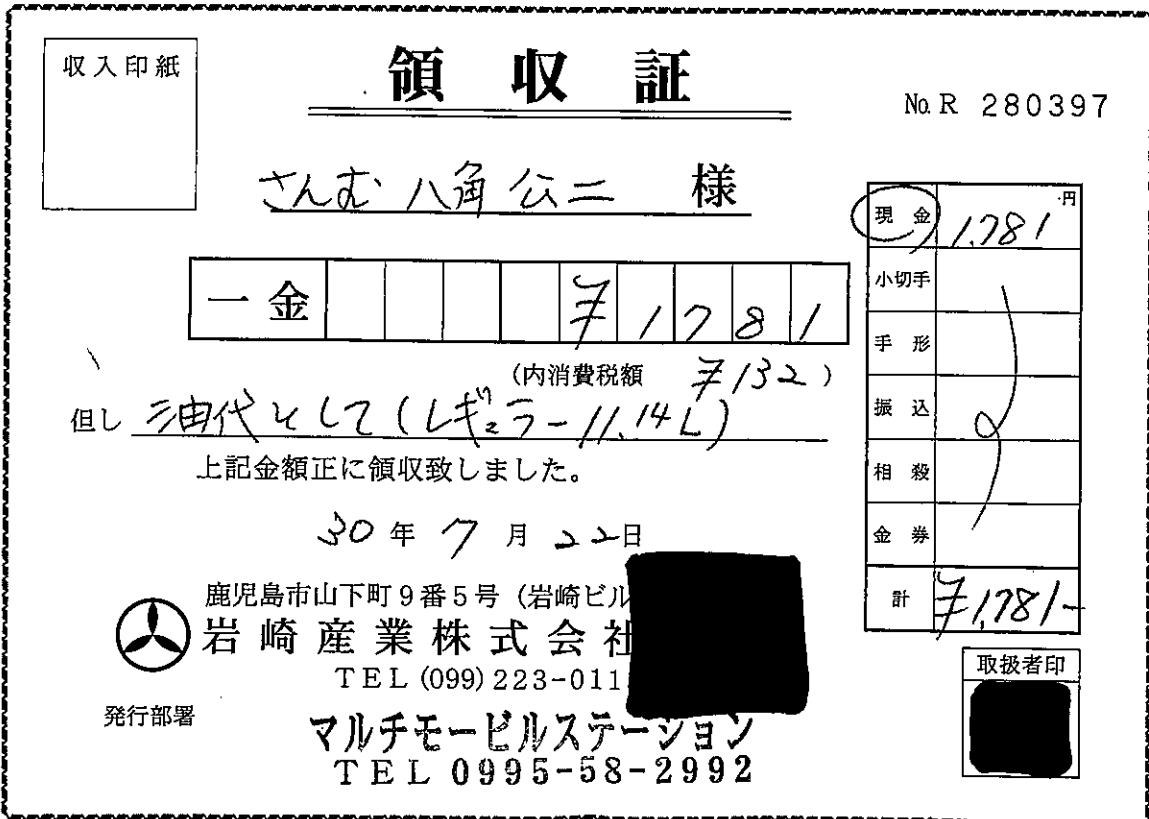 収入印紙
領収証
No. R 280397
さんむ 八角 公二 様
一金 ¥1781
(内消費税額 ¥132)
但し 油代として(レギュラー11.14L)
上記金額正に領収致しました。
30年 7月 22日
鹿児島市山下町9番5号 (岩崎ビル
岩崎産業株式会社
TEL (099) 223-011
発行部署
マルチモービルステーション
TEL 0995-58-2992
現金 1,781 円
小切手
手形
振込
相殺
金券
計 ¥1,781-
取扱者印